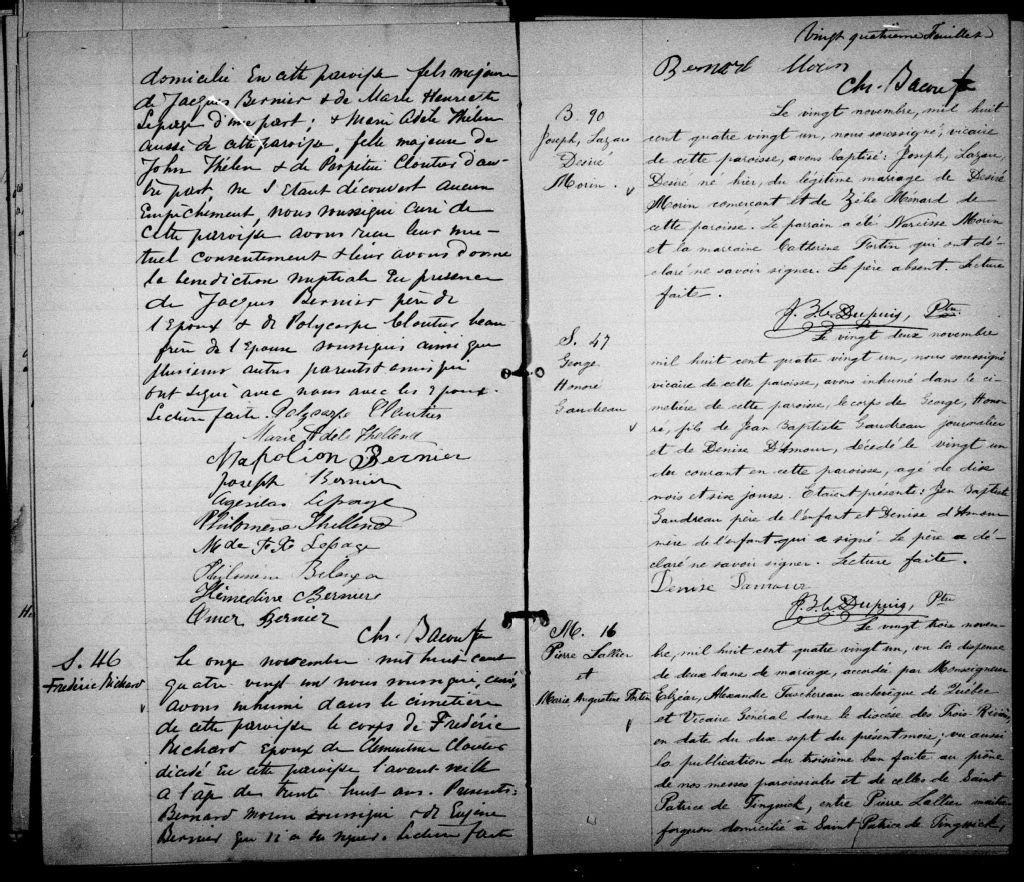 domicilié En cette paroisse fils majeure
de Jacques Bernier & de Marie Henriette
Lepage d'une part; & Marie Adèle Thélen
aussi de cette paroisse, fille majeure de
John Thélen & de Perpétue Cloutier d'au-
tre part, ne s'etant découvert aucun
Empêchement, nous soussigné curé de
cette paroisse avons reçu leur mu-
tuel consentement & leur avons donné
la benediction nuptiale En presence
de Jacques Bernier père de
l'Epoux & de Polycarpe Cloutier beau
frère de l'Epouse soussignés ainsi que
plusieurs autres parents & amis qui
ont signé avec nous avec les Epoux.
Lecture faite. Polycarpe Cloutier
Marie Adèle Thelland
Napoléon Bernier
Joseph Bernier
Agésilas Lepage
Philomène Thelland
M de F. X. Lepage
Philomène Bélanger
Bernier
Omer Bernier
Chs. Bacon ptre
S. 46
Frédéric Richard
Le onze novembre mil huit cent
quatre vingt un nous soussigné, curé,
avons inhumé dans le cimetière
de cette paroisse le corps de Frédéric
Richard Epoux de Clementine Cloutier
décédé En cette paroisse l'avant veille
a l'age de trente huit ans. Presents:
Bernard Morin soussigné & de Eugène
Bernier qui n'a su signer. Lecture faite
Vingt quatrième Feuillet
Bernard Morin
Chs. Bacon ptre
B. 90
Joseph, Lazare
Desiré
Morin.
Le vingt novembre, mil huit
cent quatre vingt un, nous soussigné, vicaire
de cette paroisse, avons baptisé: Joseph, Lazare,
Desiré né hier, du légitime mariage de Desiré
Morin comerçant et de Zélie Ménard de
cette paroisse. Le parrain a été Narcisse Morin
et la marraine Catherine Fortin qui ont dé-
claré ne savoir signer. Le père absent. Lecture
faite.
J. B. C. Dupuis, Ptre
S. 47
George
Honoré
Gaudreau
Le vingt deux novembre
mil huit cent quatre vingt un, nous soussigné
vicaire de cette paroisse, avons inhumé dans le ci-
metière de cette paroisse, le corps de George, Hono-
ré, fils de Jean Baptiste Gaudreau journalier
et de Denise D'Amour, décédé le vingt un
du courant en cette paroisse, agé de dix
mois et six jours. Etaient présents: Jean Baptiste
Gaudreau père de l'enfant et Denise d'Amour
mère de l'enfant qui a signé. Le père a dé-
claré ne savoir signer. Lecture faite.
Denise Damour
J. B. C. Dupuis, Ptre
M. 16
Pierre Lallier
et
Marie Augustine Fortin
Le vingt trois novem-
bre, mil huit cent quatre vingt un, vu la dispense
de deux bans de mariage, accordé par Monseigneur
Elzéar, Alexandre Taschereau archevêque de Québec
et Vicaire Général dans le diocèse des Trois Rivières,
en date du dix sept du présent mois; vu aussi
la publication du troisième ban faite au prône
de nos messes paroissiales et de celles de Saint
Patrice de Tingwick, entre Pierre Lallier maître
forgeron domicilié à Saint Patrice de Tingwick,